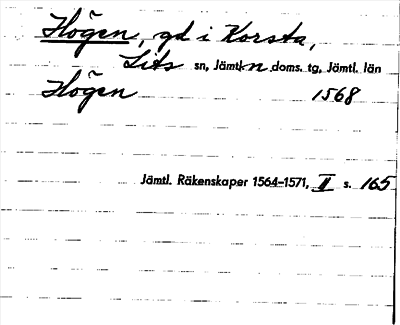 Högen, gd i Korsta,
Lits sn, Jämtl. n doms. tg, Jämtl. län
Högen 1568
Jämtl. Räkenskaper 1564-1571, II s. 165